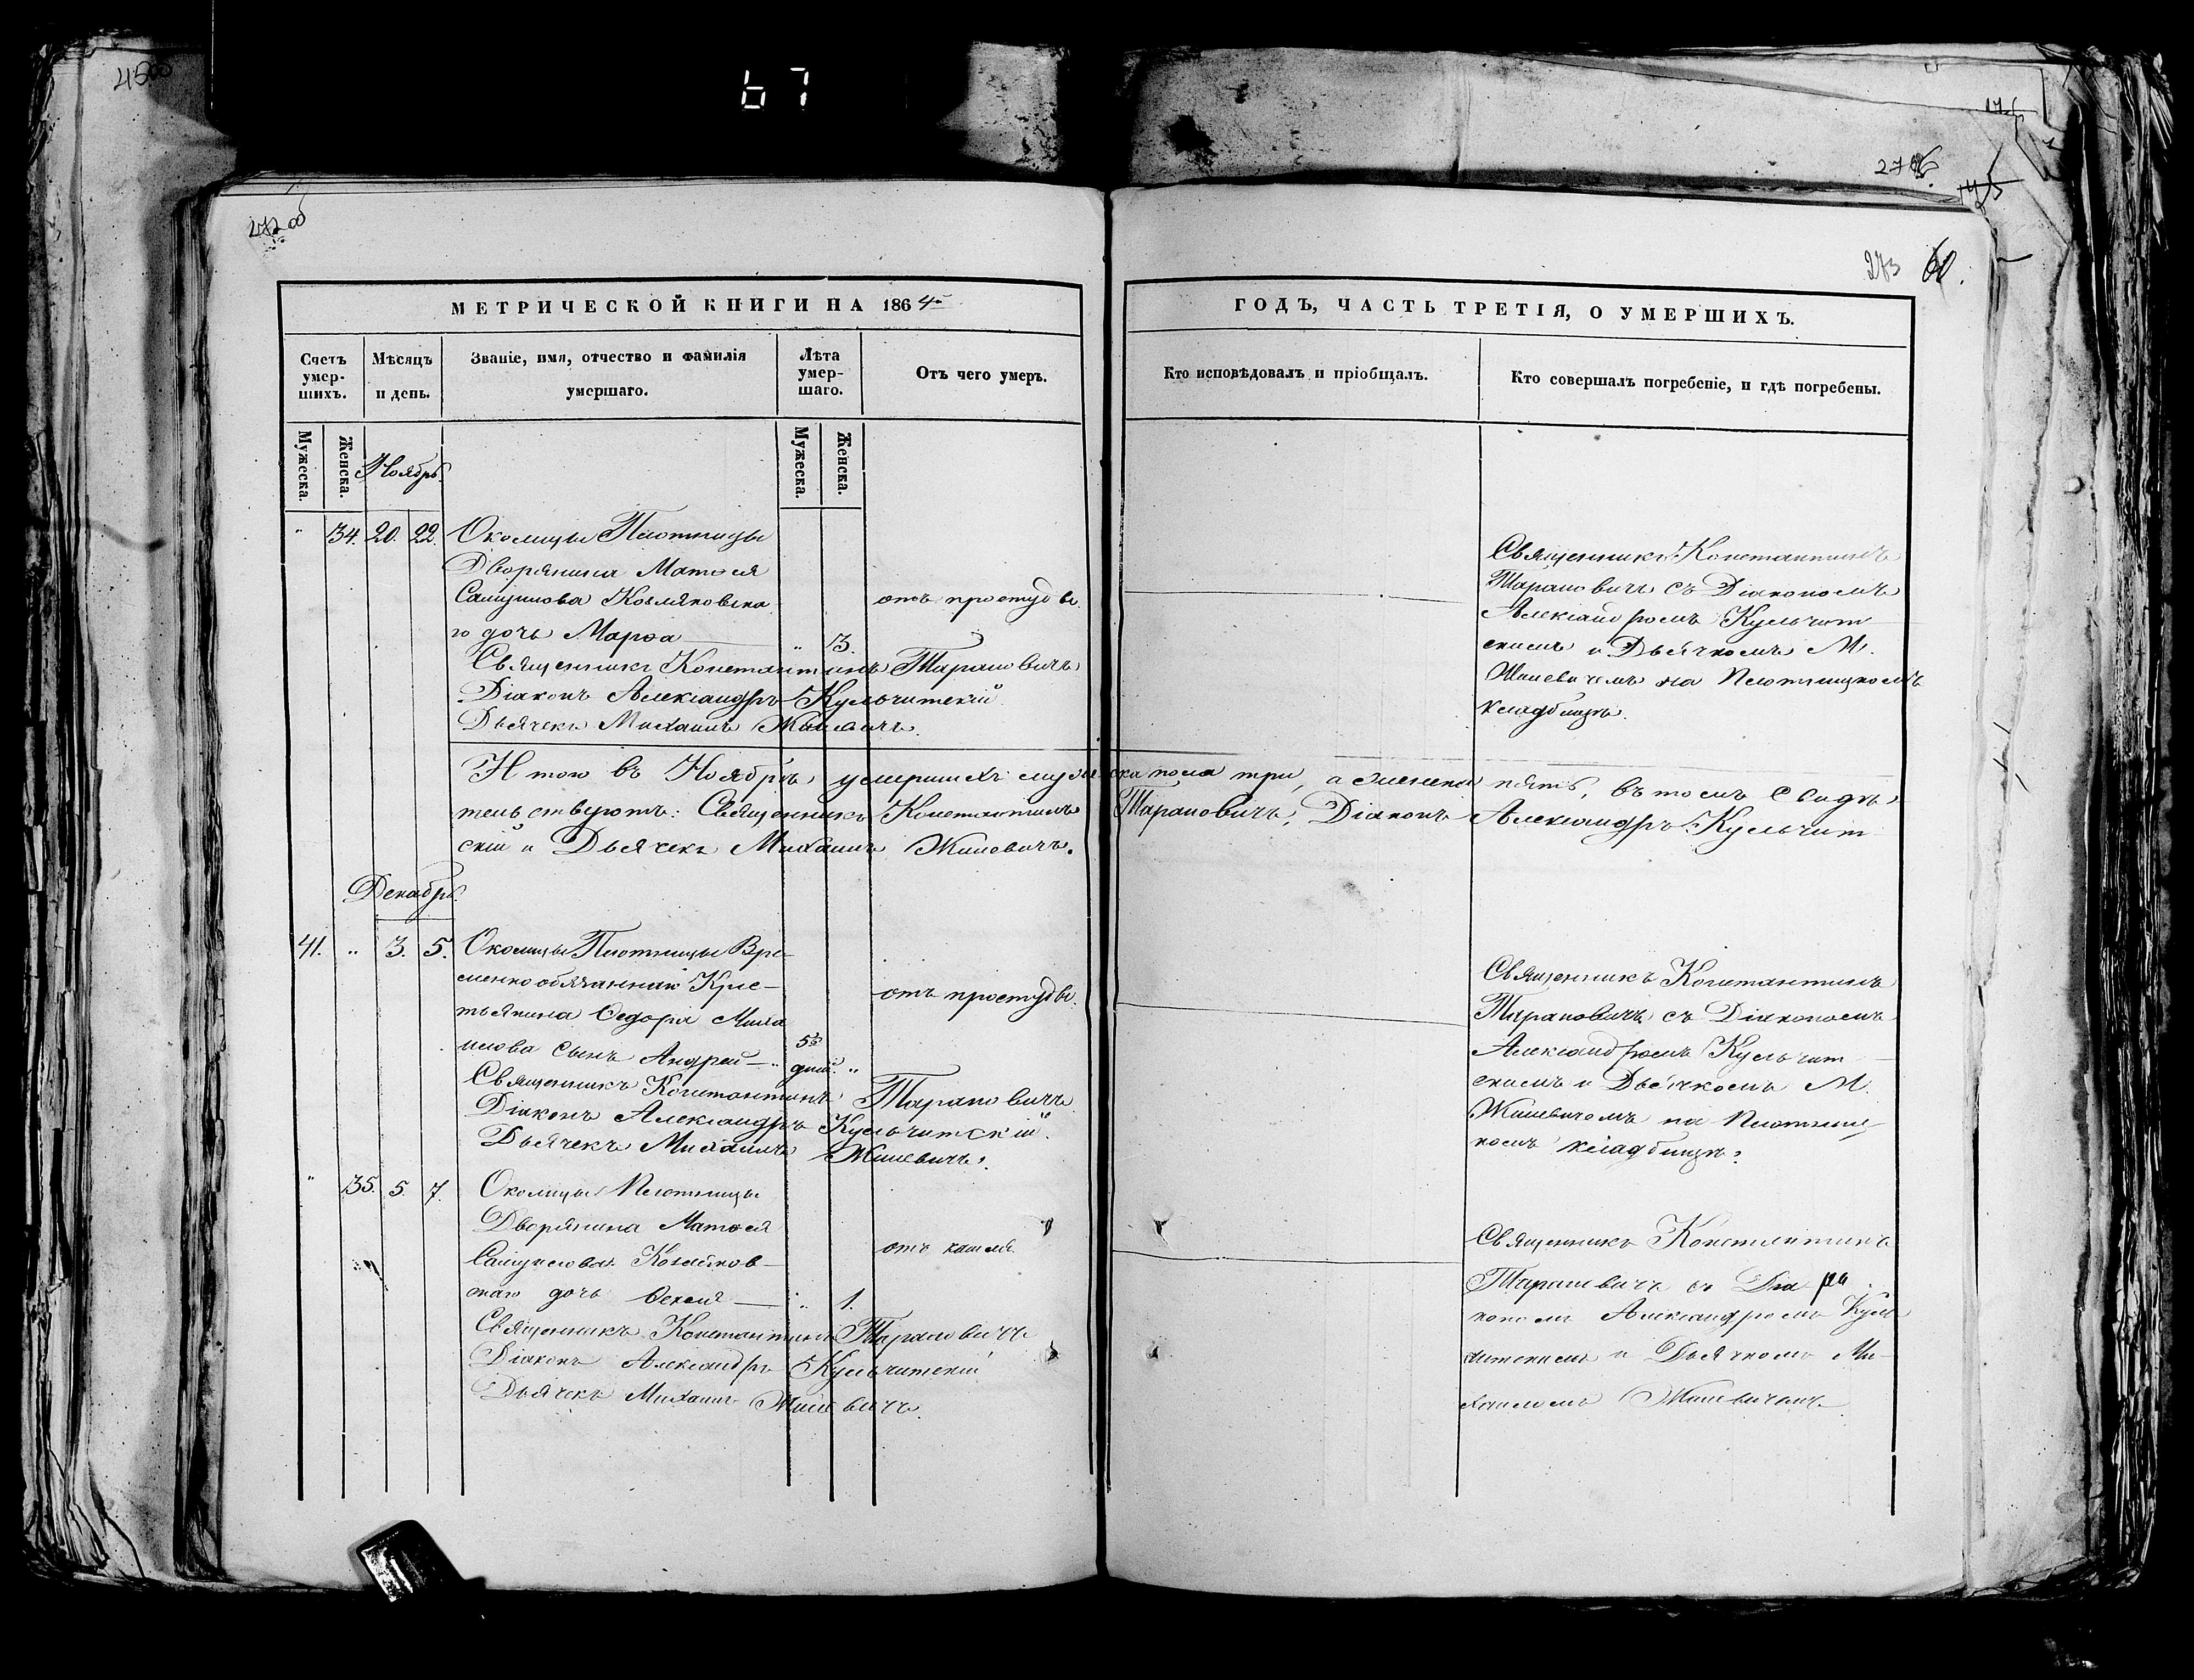 67
45об
272об
176
2766
175
273 60.
МЕТРИЧЕСКОЙ КНИГИ НА 1864
ГОДЪ, ЧАСТЬ ТРЕТІЯ, О УМЕРШИХЪ.
Счетъ умер-шихъ.
Мѣсяцъ и день.
Званіе, имя, отчество и фамилія умершаго.
Лѣта умер-шаго.
Отъ чего умеръ.
Кто исповѣдовалъ и пріобщалъ.
Кто совершалъ погребеніе, и гдѣ погребены.
Мужеска.
Женска.
Мужеска.
Женска.
Ноябрь.
" 34. 20. 22. Околицы Плотницы
Дворянина Матѳея
Самуилова Козляковска
го дочь Марѳа " 3.
отъ простуды.
Священникъ Константинъ Тарановичъ
Діаконъ Александръ Кульчитскій
Дьячекъ Михаилъ Жилевичъ.
Священникъ Константинъ
Тарановичъ съ Діакономъ
Александромъ Кульчит
скимъ и Дьячкомъ М.
Жилевичемъ на Плотницкомъ
кладбищѣ.
Итого въ Ноябрѣ умершихъ мужеска пола три, а женска пять, въ томъ свидѣ
тельствуютъ: Священникъ Константинъ Тарановичъ, Діаконъ Александръ Кульчит
скій и Дьячекъ Михаилъ Жилевичъ.
Декабрь.
41. " 3. 5. Околицы Плотницы Вре-
менно обязаннаго Кре-
стьянина Ѳедора Миха
илова сынъ Андрей 5 дній. "
отъ простуды.
Священникъ Константинъ Тарановичъ
Діаконъ Александръ Кульчитскій.
Дьячекъ Михаилъ Жилевичъ.
Священникъ Константинъ
Тарановичъ съ Діакономъ
Александромъ Кульчит
скимъ и Дьячкомъ М.
Жилевичомъ на Плотниц
комъ кладбищѣ.
" 35. 5. 7. Околицы Плотницы
Дворянина Матѳея
Самуилова Козляков-
скаго дочь Ѳекля " 1.
отъ кашля
Священникъ Константинъ Тарановичъ
Діаконъ Александръ Кульчитскій
Дьячекъ Михаилъ Жилевичъ.
Священникъ Константинъ
Тарановичъ съ Діа
кономъ Александромъ Куль
читскимъ и Дьячкомъ Ми-
хаиломъ Жилевичемъ